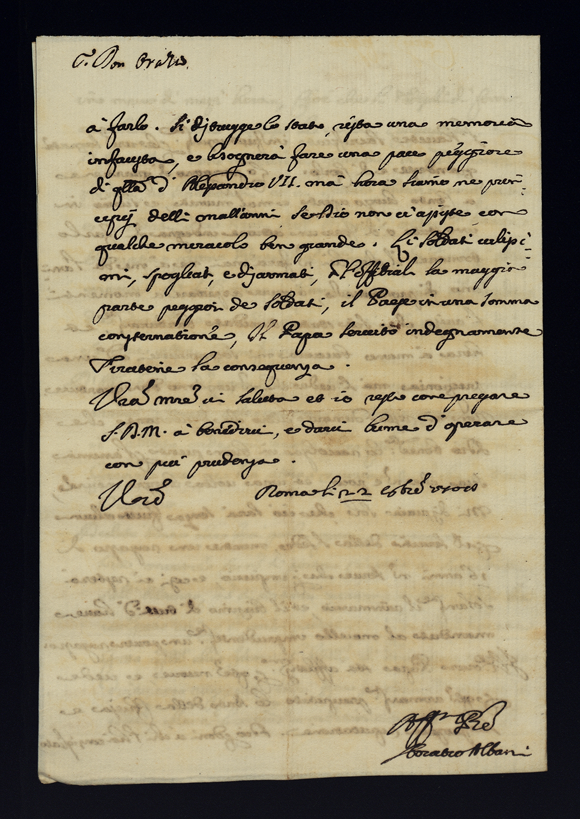 à farlo. Si distrugge lo stato, resta una memoria
infausta, e bisognerà fare una pace peggiore
di qlla d'Alessandro VII. mà hora siamo ne prin=
cipij delli mall'anni se Dio non ci assiste con
qualche miracolo ben grande. Li Soldati
mi, spogliati, e disarmati, l'Offitiali la maggior
parte peggiori de Soldati, il Paese in una somma
consternatione, il Papa servito indegnamente
Tiratene la conseguenza.
vi saluta et io resto con pregare
S.D.M. à benedirvi, e darvi lume d'operare
con più prudenza.
Roma li 22
Aff.mo Pre
Horatio Albani